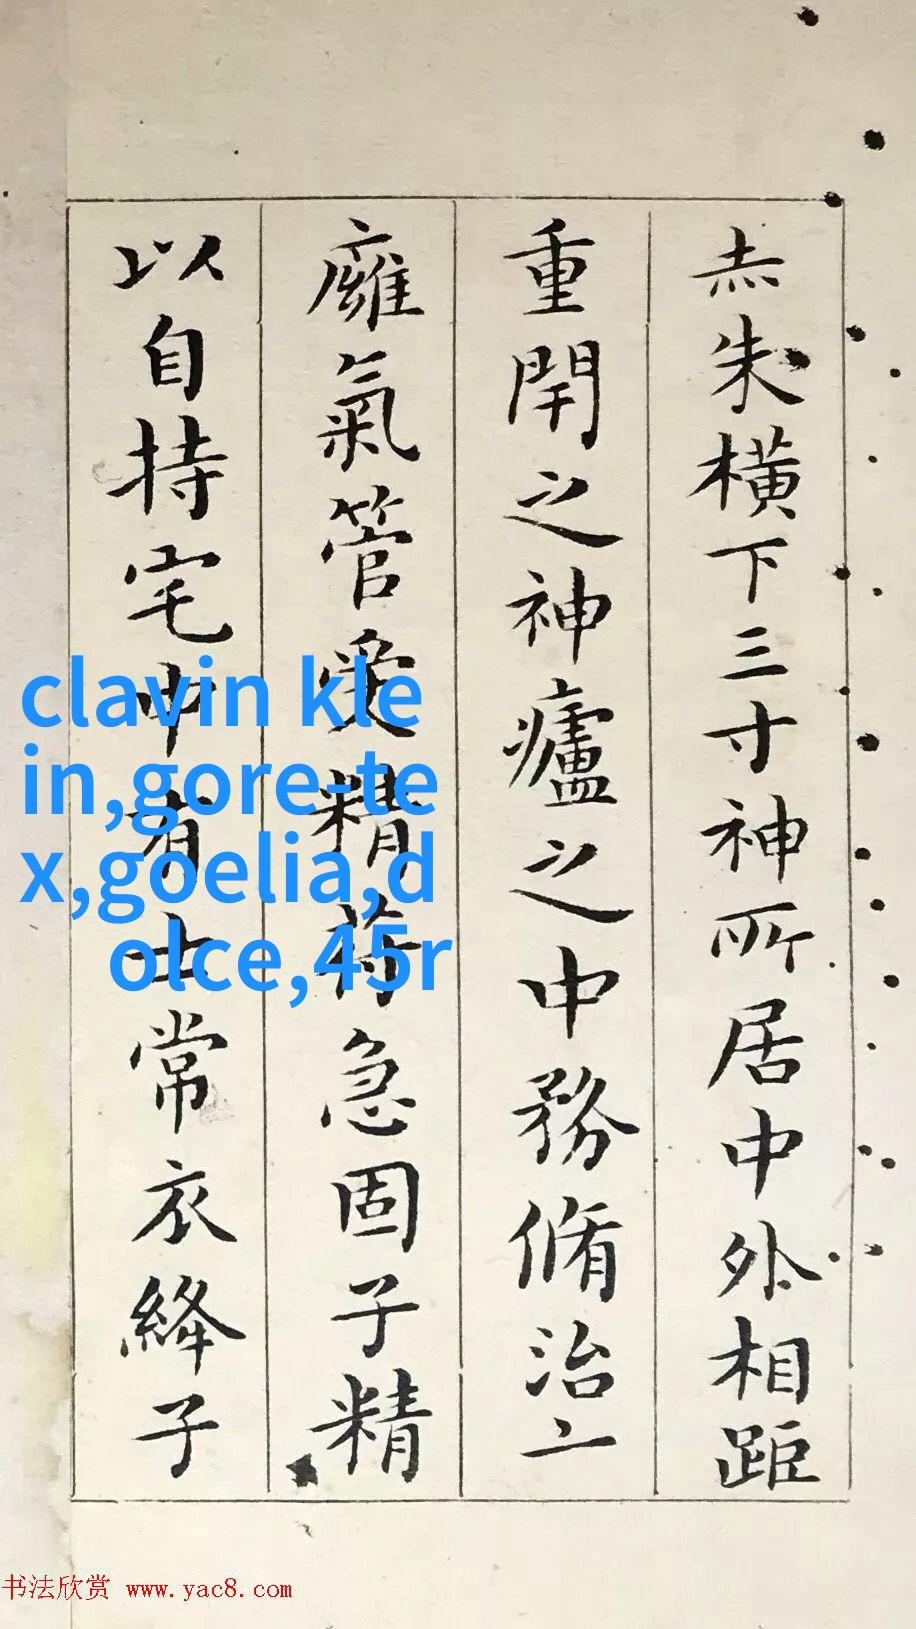 赤朱橫下三寸神所居中外相距
重閇之神廬之中務脩治亠
廱氣管受精苻急固子精
以自持宅中有士常衣絳子
clavin kle
in,gore-te
x,goelia,d
olce,45r
书法欣赏 www.yac8.com